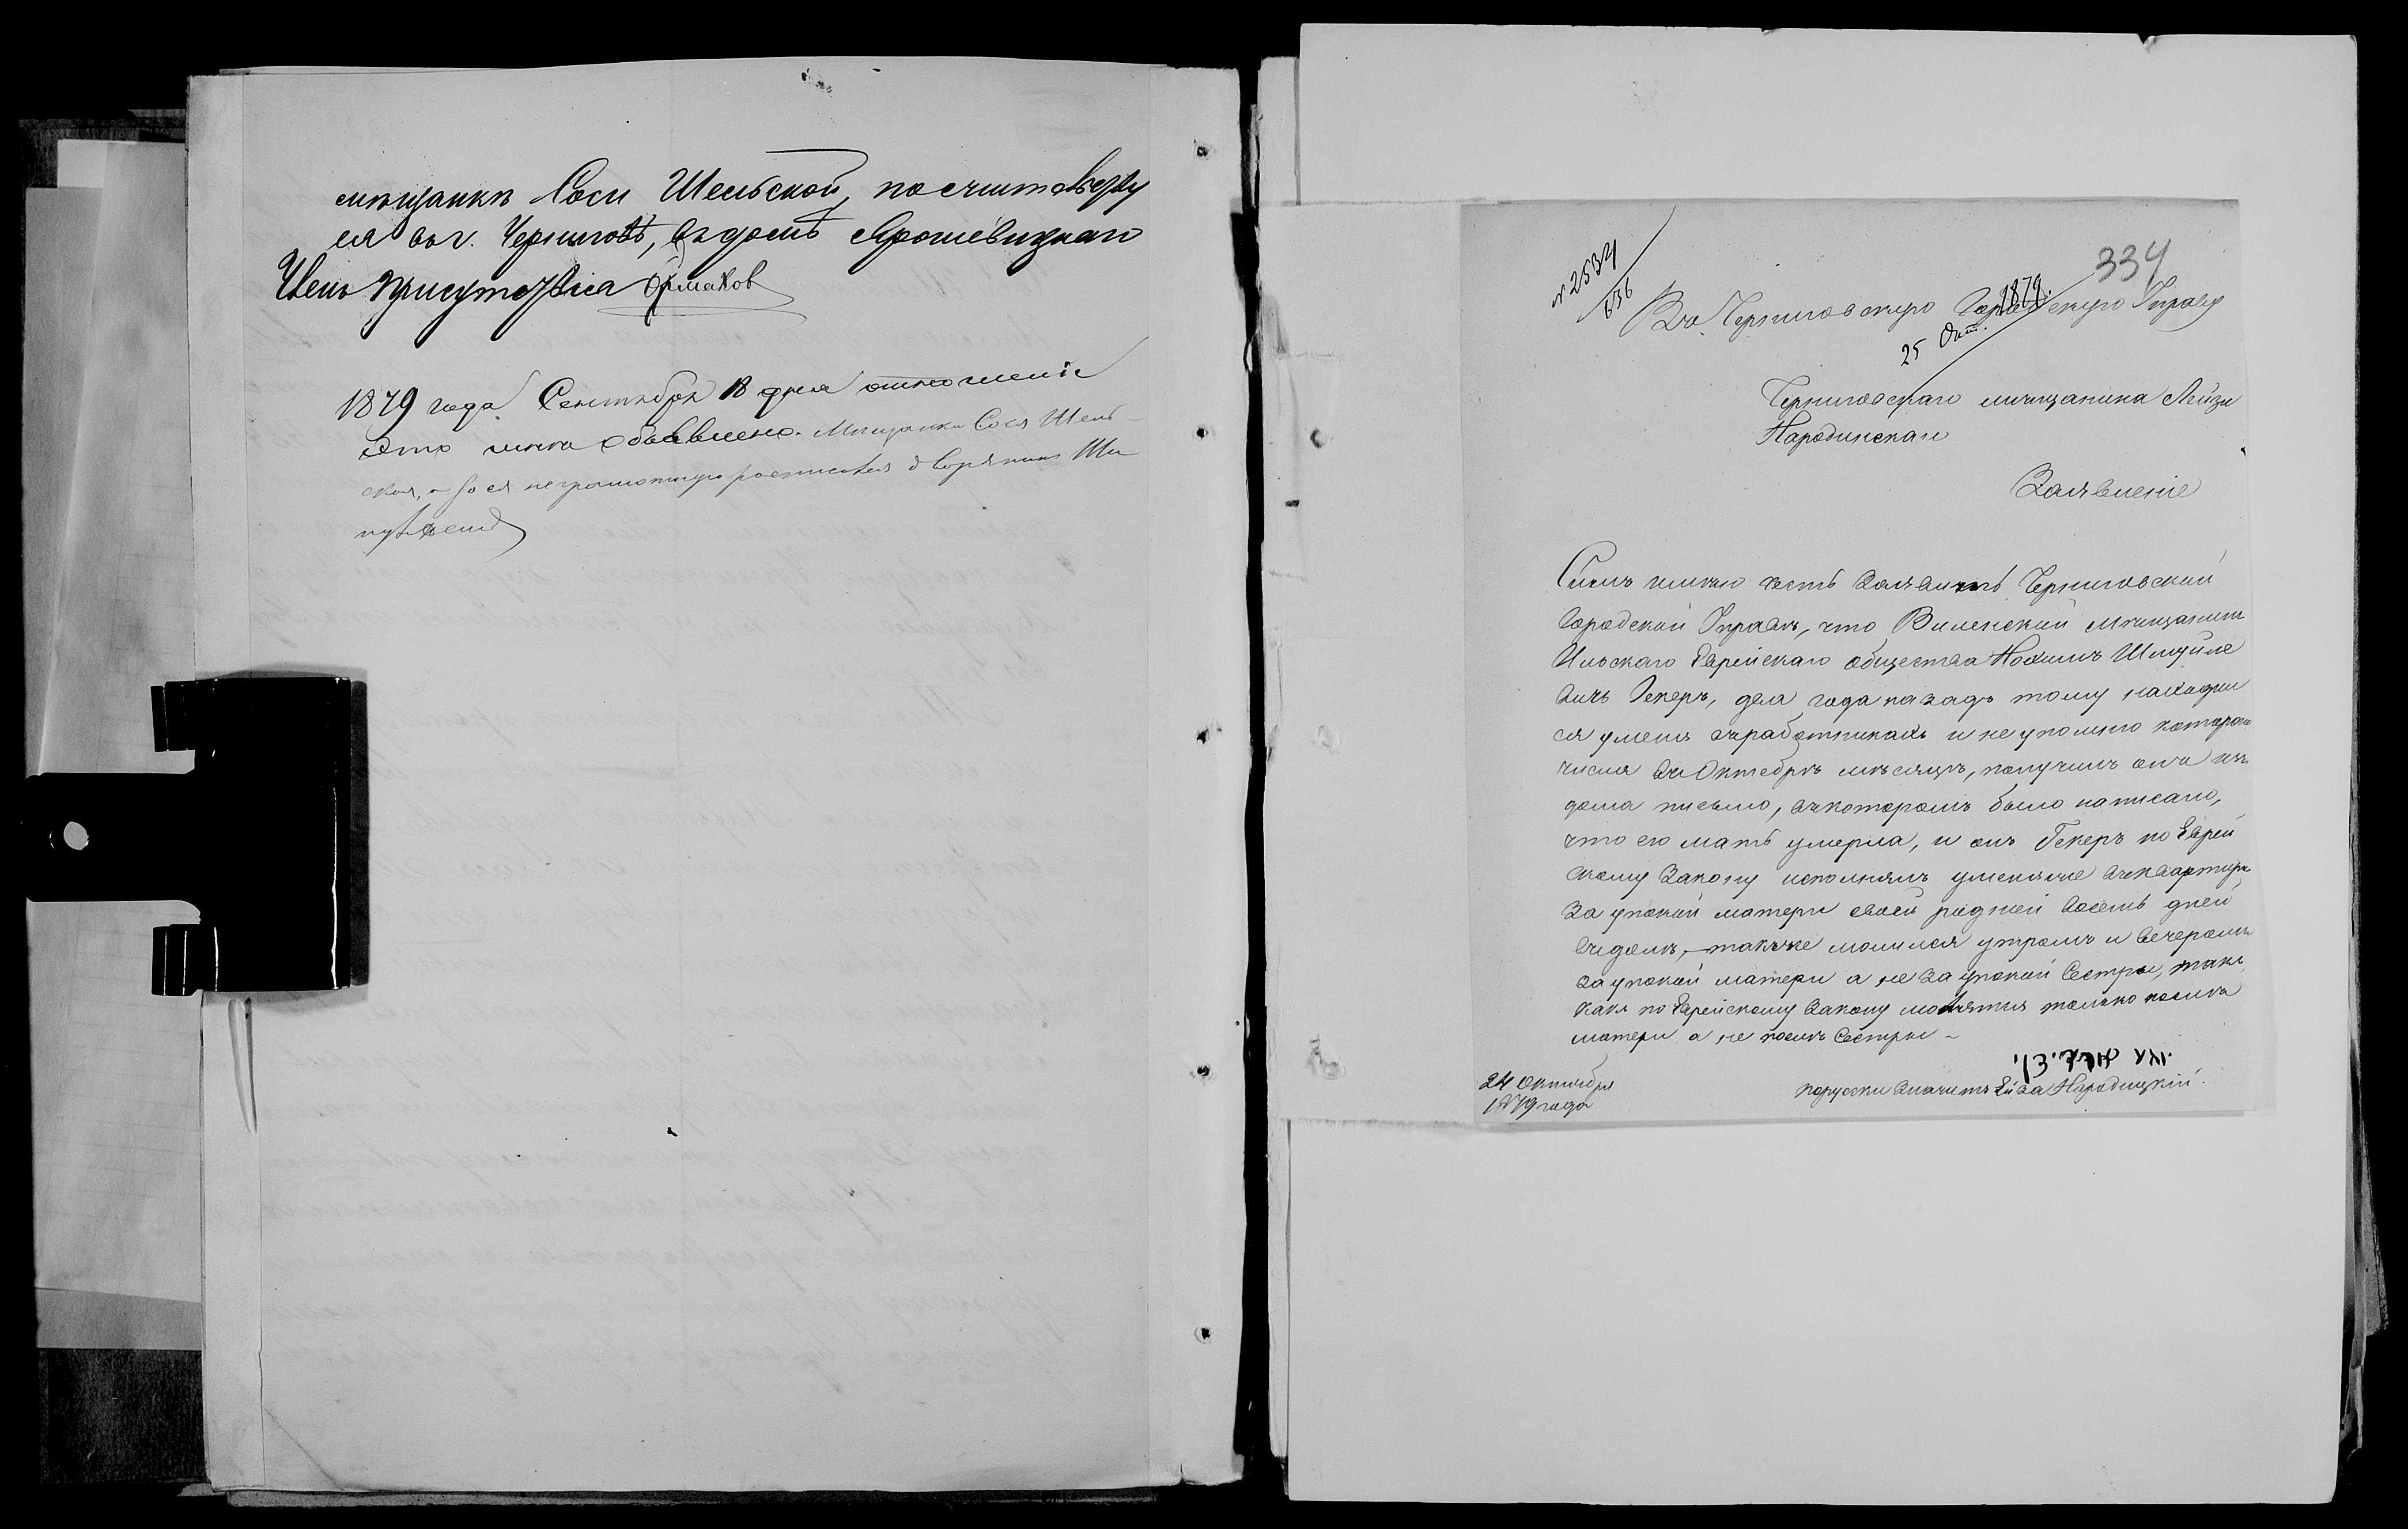 мѣщанкѣ Соси Шельской, по
ея въ г. Черниговѣ, въ домѣ Ярошевицкаго
Членъ Присутствія Ермаков
1879 года Сентября 18 дня отношеніе
это мнѣ объявлено. Мещанка Сося Шель-
ская, а за ея неграмотную росписался дворянин
334
№ 2534
636
1879.
25 Окт.
Въ Черниговскую Городскую Управу
Черниговскаго мѣщанина Лейзи
Народицскаго
Заявленіе
Симъ имѣю честь Заявить Черниговской
Городской Управѣ, что Виленский мѣщанинъ
Ильскаго Еврейскаго общества Нохимъ Шмуйло
вичъ Гекеръ, два года назадъ тому находил
ся уменя вработникахъ и не упомню котораго
числа въ Октебрѣ мѣсяцѣ, получилъ онъ изъ
дома письмо, вкоторомъ было написано,
что его мать умерла, и онъ Гекеръ по Еврей
скому Закону исполнялъ уменя же вквартирѣ
За упокой матери своей родней восемь дней
Видомъ, также молился утромъ и вечеромъ
за упокой матери а не за упокой Сестры, такъ
какъ по Еврейскому Закону молятся только послѣ
матери а не послѣ Сестры -
24 Октября
1879 года
порусски значитъ Ейза Народицкій.